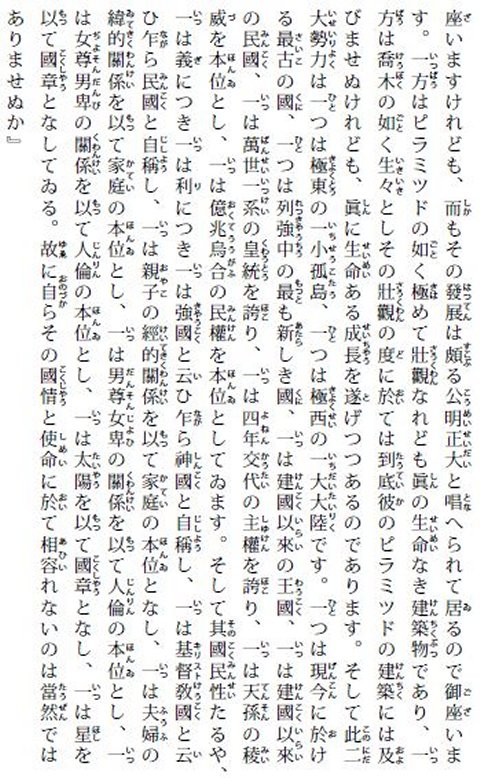 座いますけれども、而もその發展は頗る公明正大と唱へられて居るので御座いま
す。一方はピラミツドの如く極めて壯觀なれども眞の生命なき建築物であり、一
方は喬木の如く生々としその壯觀の度に於ては到底彼のピラミツドの建築には及
びませぬけれども、眞に生命ある成長を遂げつつあるのであります。そして此二
大勢力は一つは極東の一小孤島、一つは極西の一大大陸です。一つは現今に於け
る最古の國、一つは列强中の最も新しき國、一つは建國以來の王國、一つは建國以來
の民國、一つは萬世一系の皇統を誇り、一つは四年交代の主權を誇り、一つは天孫の稜
威を本位とし、一つは億兆烏合の民權を本位としてゐます。そして其國民性たるや、
一つは義につき一つは利につき一つは强國と云ひ乍ら神國と自稱し、一つは基督敎國と云
ひ乍ら民國と自稱し、一つは親子の經的關係を以て家庭の本位となし、一つは夫婦の
緯的關係を以て家庭の本位とし、一つは男尊女卑の關係を以て人倫の本位とし、一つ
は女尊男卑の關係を以て人倫の本位とし、一つは太陽を以て國章となし、一つは星を
以て國章となしてゐる。故に自らその國情と使命に於て相容れないのは當然では
ありませぬか』